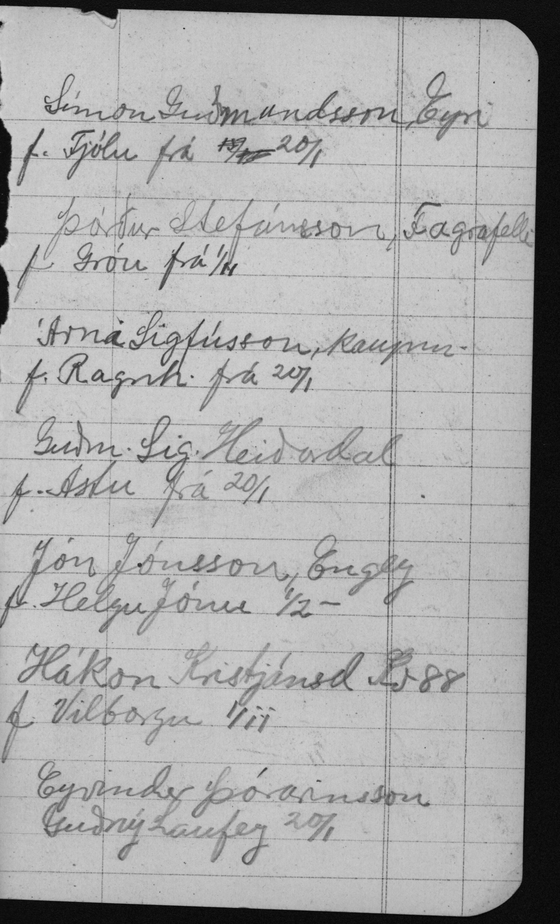 Símon Guðmundsson, Eyri
f. Fjólu frá 20/1
Þórður Stefánsson, Fagrafelli
f Gróu frá 1/11
Árna Sigfússon, kaupm-
f. Ragnh. frá 20/1
Guðm. Sig. Heiðardal
f. Ástu frá 20/1
Jón Jónsson, Engey
f. Helgu Jónu 1/2 –
Hákon Kristjánsd Kv 88
f Vilborgu 1/11
Eyvindur Þórarinsson
Guðný Laufey 20/1